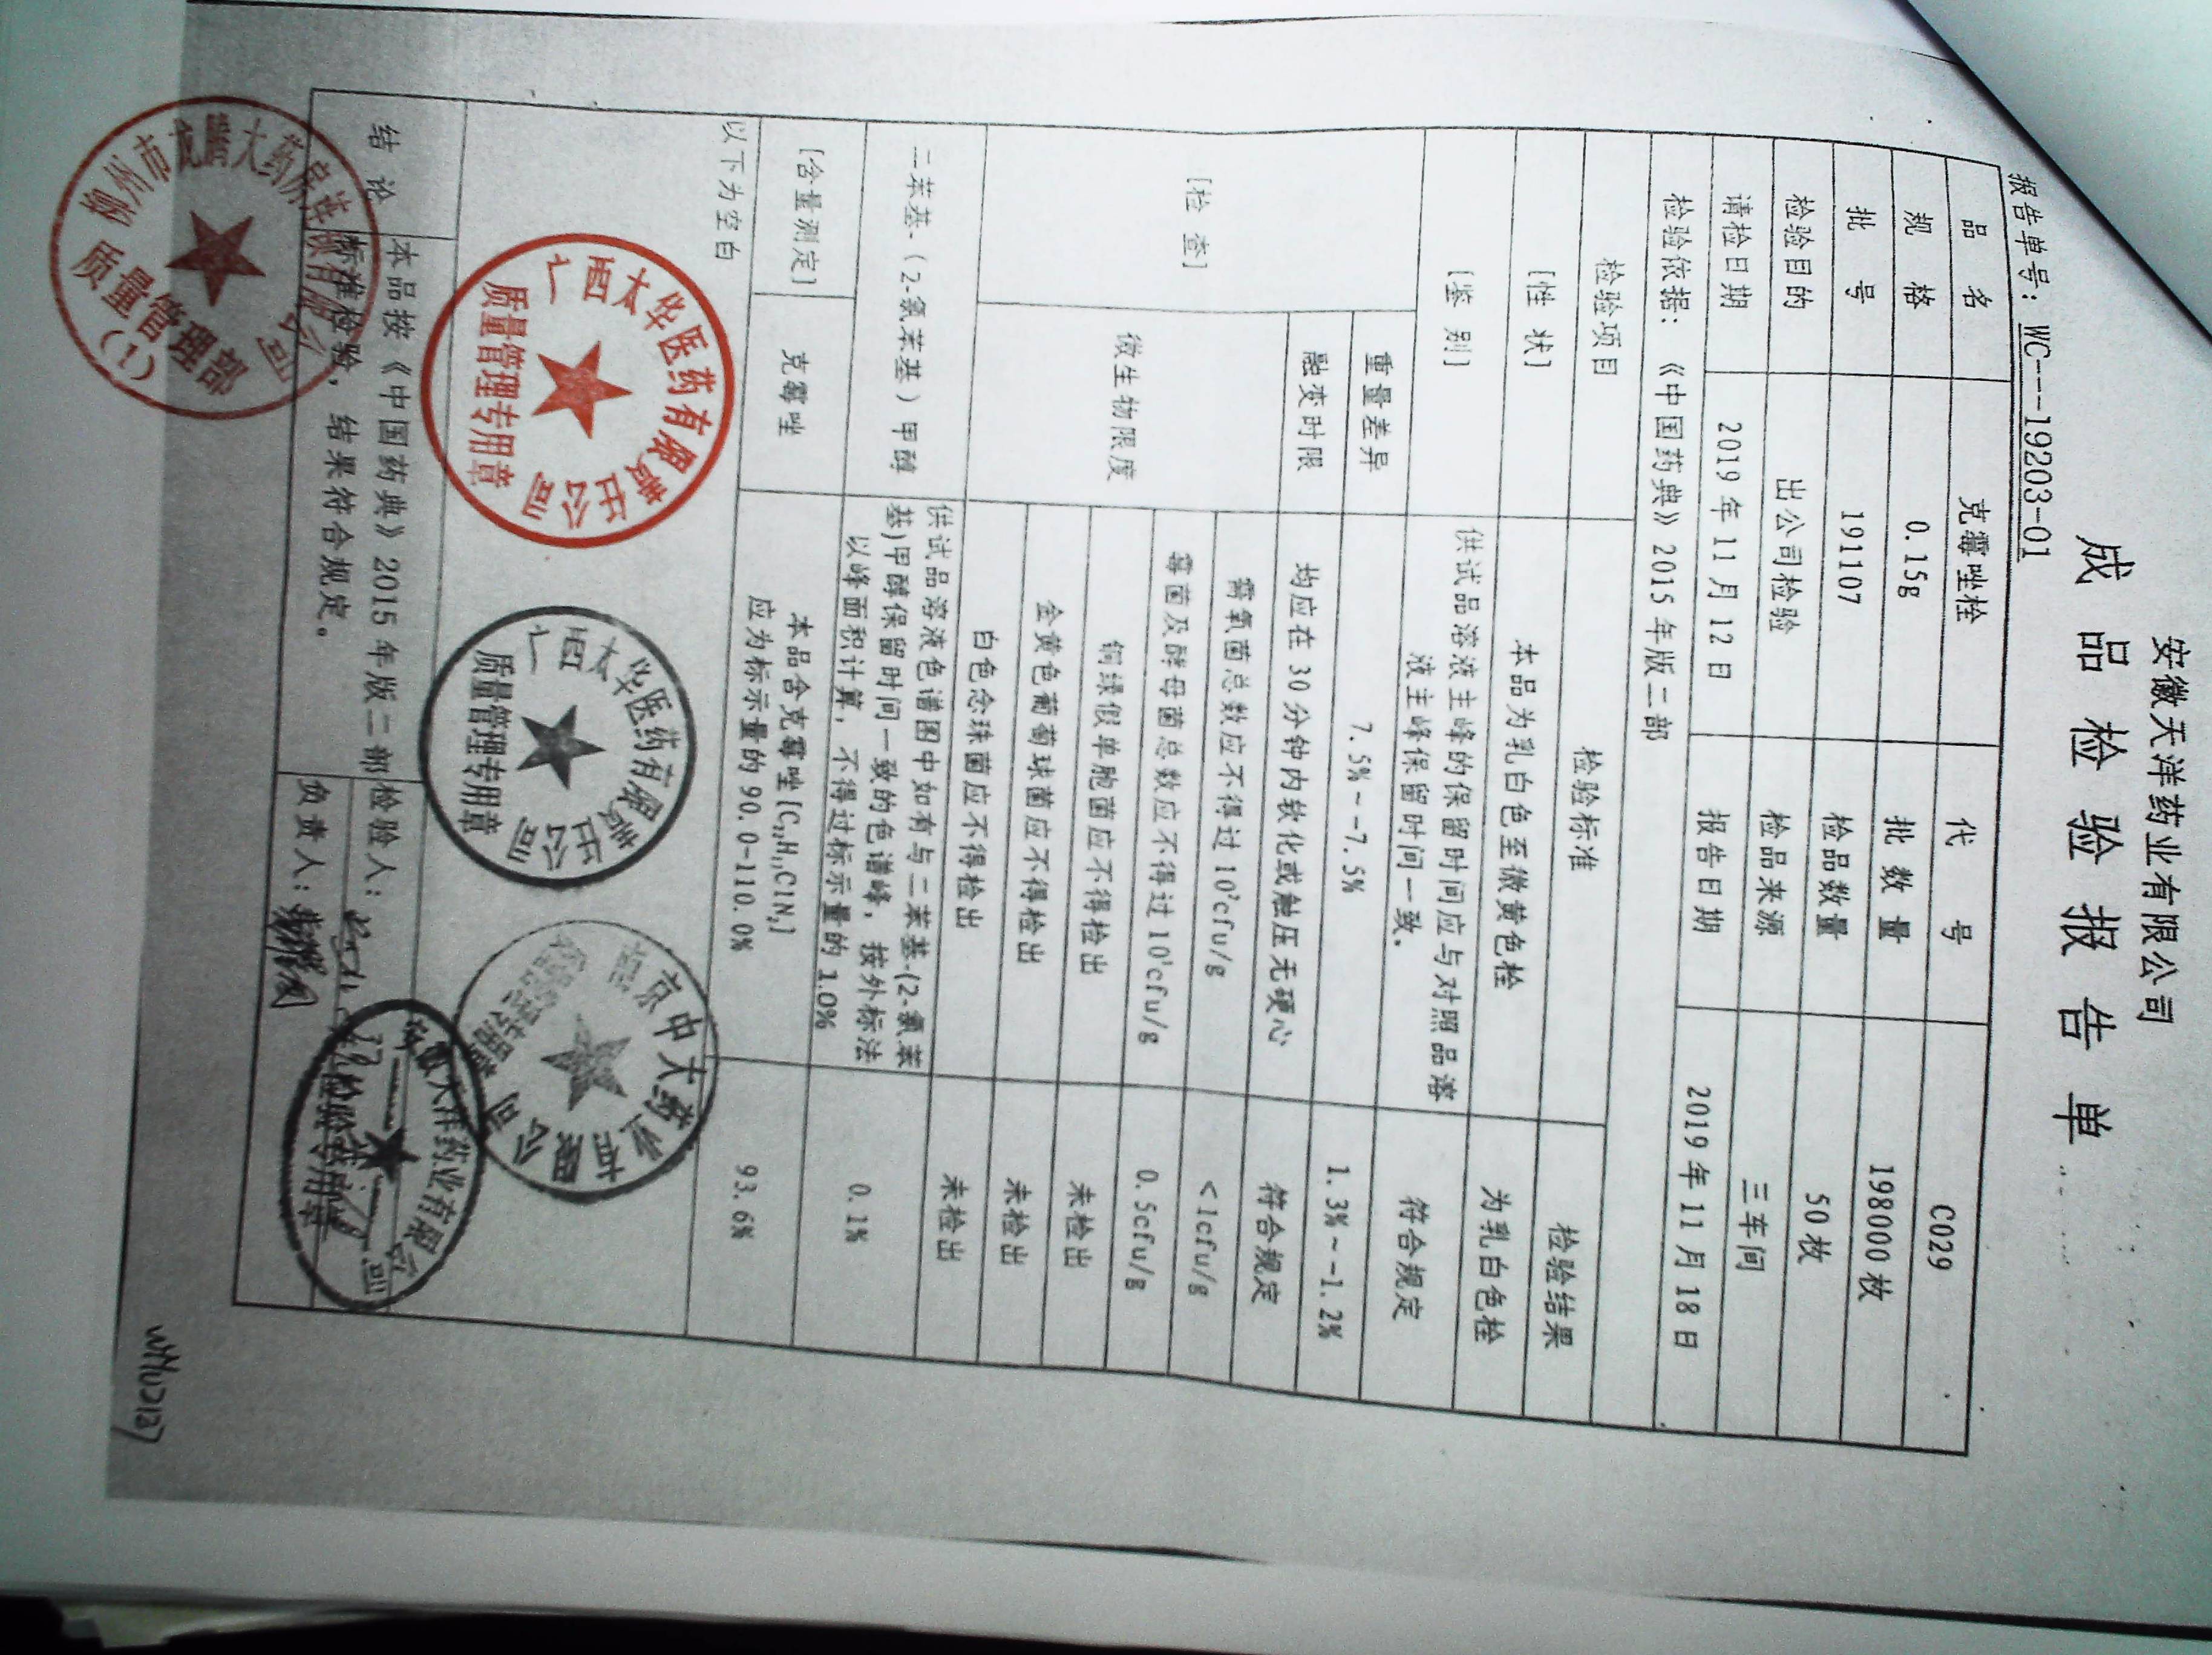 安徽天洋药业有限公司
成品检验报告单
报告单号：WC---19203-01
品 名 克霉唑栓 代 号 C029
规 格 0.15g 批 数 量 198000枚
批 号 191107 检品数量 50枚
检验目的 出公司检验 检品来源 三车间
请检日期 2019年11月12日 报告日期 2019年11月18日
检验依据：《中国药典》2015年版二部
检验项目 检验标准 检验结果
[性 状] 本品为乳白色至微黄色栓 为乳白色栓
[鉴 别] 供试品溶液主峰的保留时间应与对照品溶
液主峰保留时间一致。 符合规定
[检 查] 重量差异 7.5%~-7.5% 1.3%~-1.2%
融变时限 均应在30分钟内软化或触压无硬心 符合规定
微生物限度 需氧菌总数应不得过10²cfu/g <1cfu/g
霉菌及酵母菌总数应不得过10¹cfu/g 0.5cfu/g
铜绿假单胞菌应不得检出 未检出
金黄色葡萄球菌应不得检出 未检出
白色念珠菌应不得检出 未检出
二苯基-（2-氯苯基）甲醇 供试品溶液色谱图中如有与二苯基-(2-氯苯
基)甲醇保留时间一致的色谱峰，按外标法
以峰面积计算，不得过标示量的1.0% 0.1%
[含量测定] 克霉唑 本品含克霉唑[C₂₂H₁₇ClN₂]
应为标示量的90.0-110.0% 93.6%
以下为空白
广西太华医药有限责任公司
质量管理专用章
广西太华医药有限责任公司
质量管理专用章
京中大药业
公司
结 论 本品按《中国药典》2015年版二部
标准检验，结果符合规定。
检验人：
负责人：
安徽天洋药业有限公司
检验专用章
柳州市龙腾大药房连锁有限公司
质量管理部
(1)